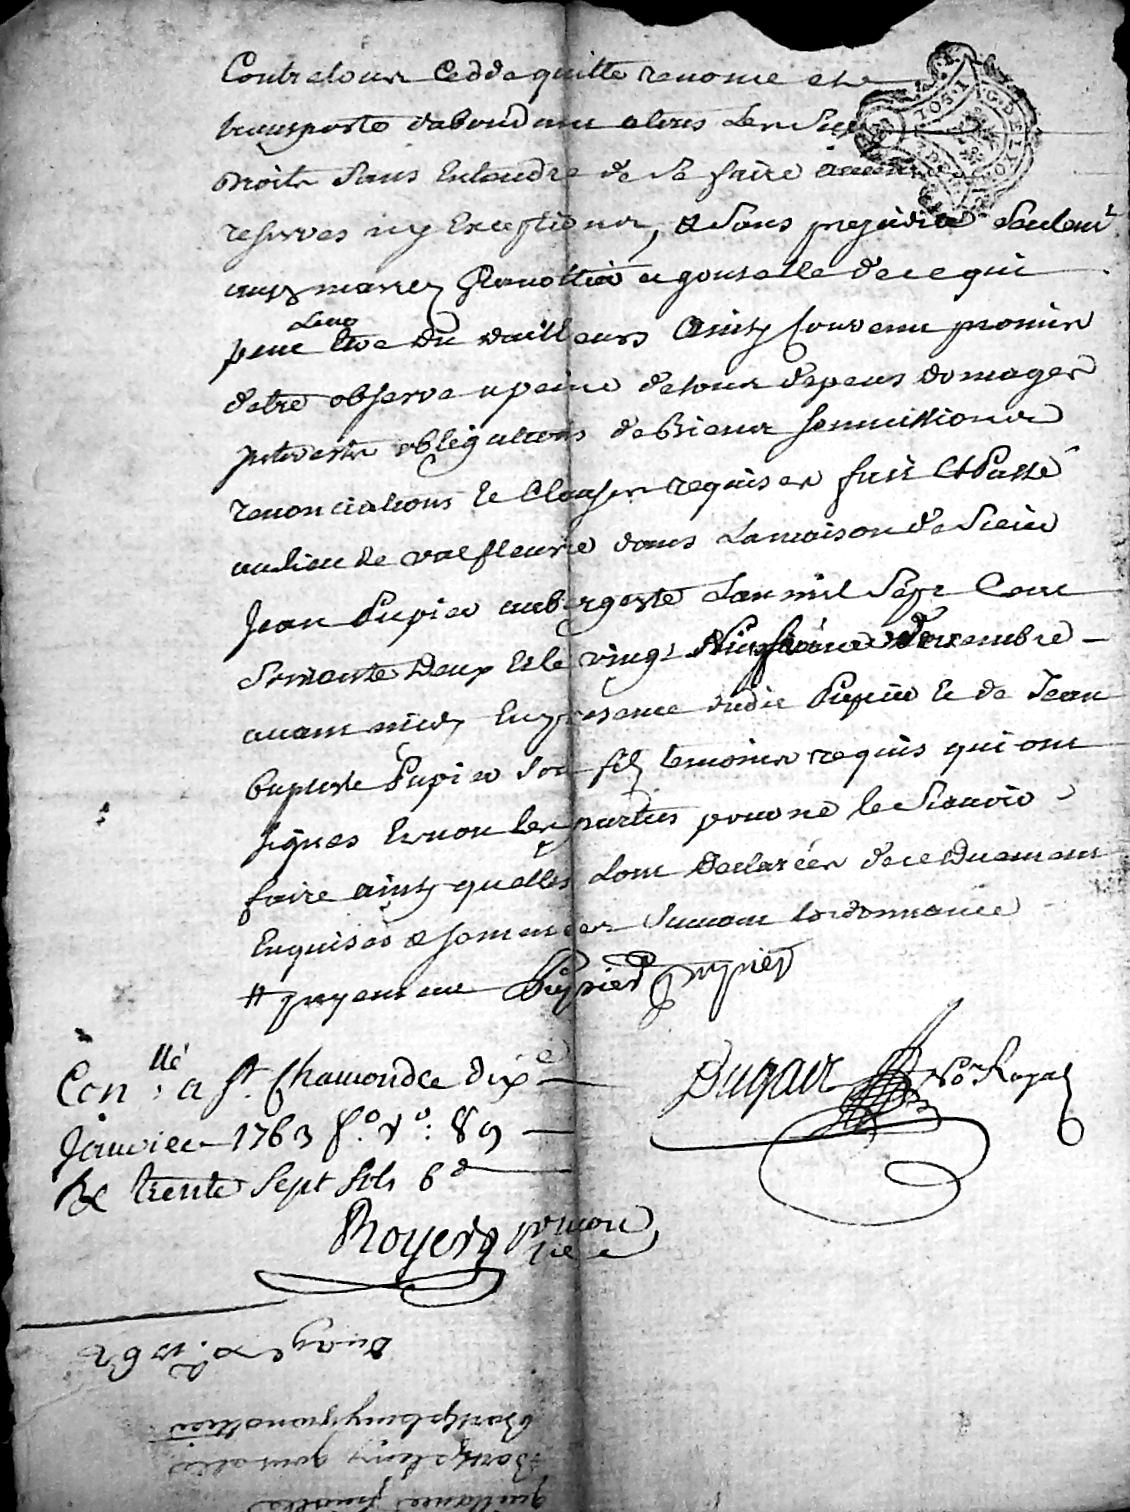 Contre tour cedde quitte renonce et
transporte dabondant a tous les
droits sans Entendre de se faire aucunes
reserves ny Exceptions, & sans prejudice seulemt
aux mariez et gonselle de ce qui
leur
peut Etre du dailleurs ainsy Convenu promis
detre observe a peine de tous depens domages
interests obligations de biens soumissions
renonciations et Clauses requises fait Et Passé
au lieu de valfleurie dans La maison de Sieur
Jean Pupier aubergiste Lan mil Sept Cent
Soixante Deux Et le vingt novembre
avant midy En presence dudit Pupier Et de Jean
baptiste Pupier son fils temoins requis qui ont
signes Et non les parties pour ne le Scavoir
faire ainsy quelles ont Declarées de ce Duement
Enquises & sommées Suivant lordonnance
Pupier pupier
Conllé a St. Chamond ce dixe
Janvier 1763 fo. vo: 89
Rc trente Sept sols 6d
Dugair No. Royal
Royer
1762
Barthelemy
Barthelemy gonselle
quittance